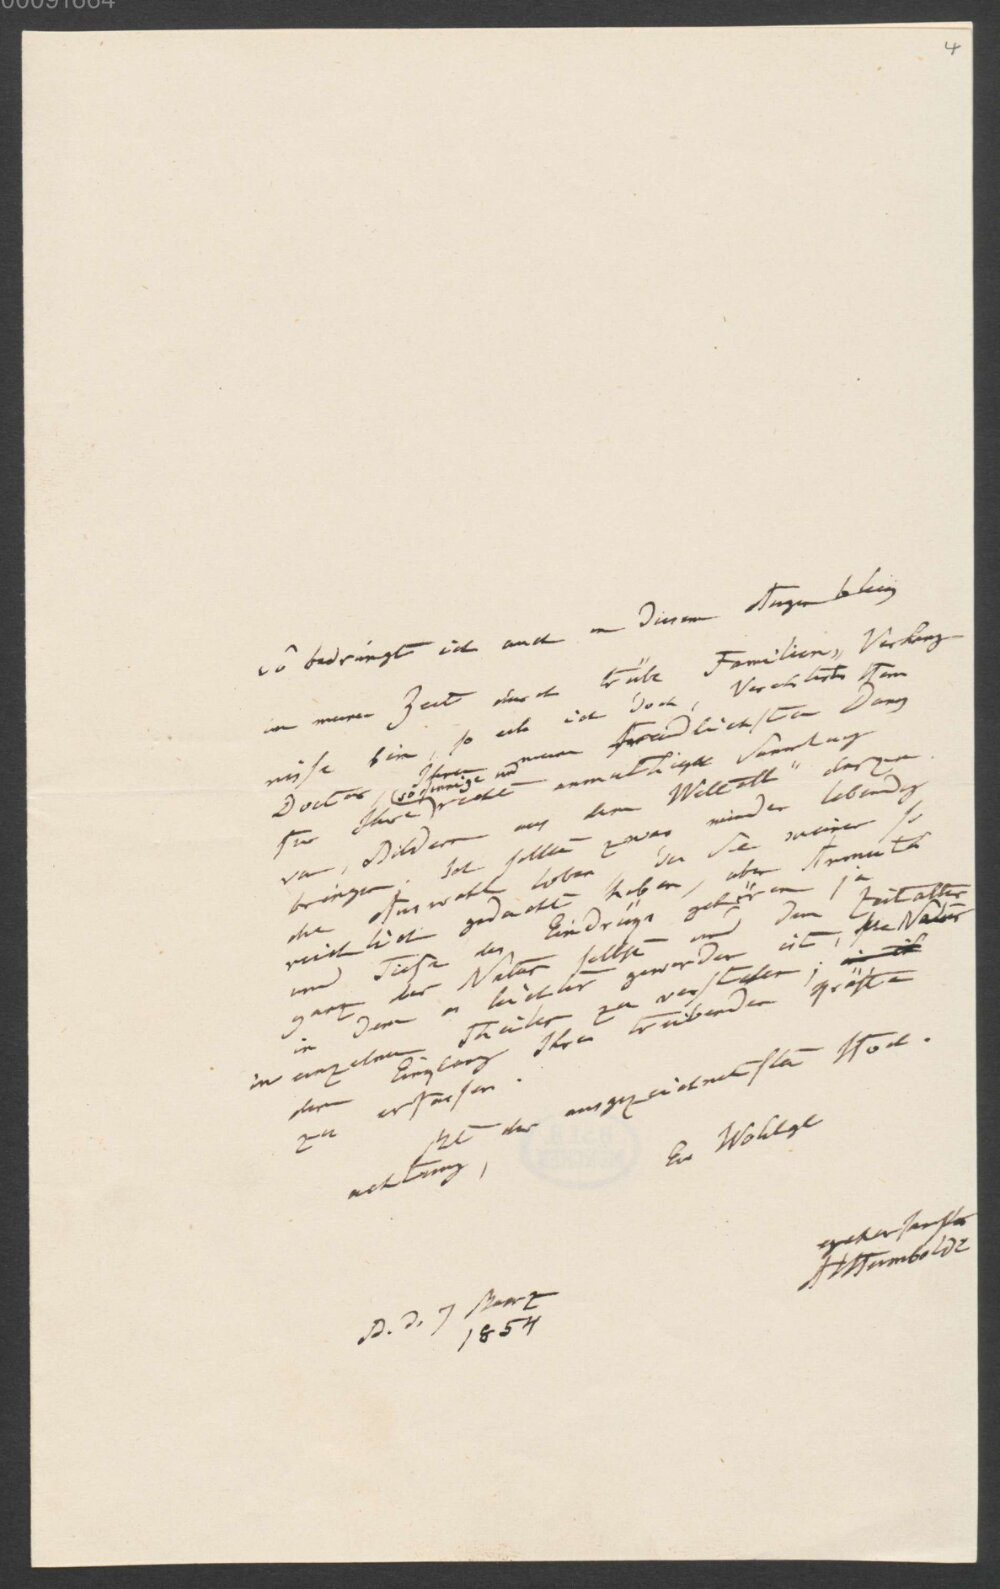 00091664
4
So bedrängt ich auch in diesem Augenblick
in meiner Zeit durch trübe Familien„Verhäng
nisse bin, so eile ich doch, Verehrtester Herr
Doctor, Ihnen meinen freundlichsten Dank
für Ihre (so sinnige und) recht anmuthige Sammlung
von „Bildern aus dem Weltall" darzu
bringen. Ich sollte zwar minder lebendig
die Auswahl loben da Sie meiner so
reichlich gedacht haben, aber Anmuth
und Tiefe des Eindruks gehören ja
ganz der Natur selbst und dem Zeitalter
in dem es leichter geworden ist, die Natur
in einzelnen Theilen zu verstehen,
den Einklang ihrer treibenden Kräfte
zu erfassen.
Mit der ausgezeichnetsten Hoch.
achtung,
Ew Wohlgb
gehorsamster
AvHumboldt
B. d. 7 Maerz
1854